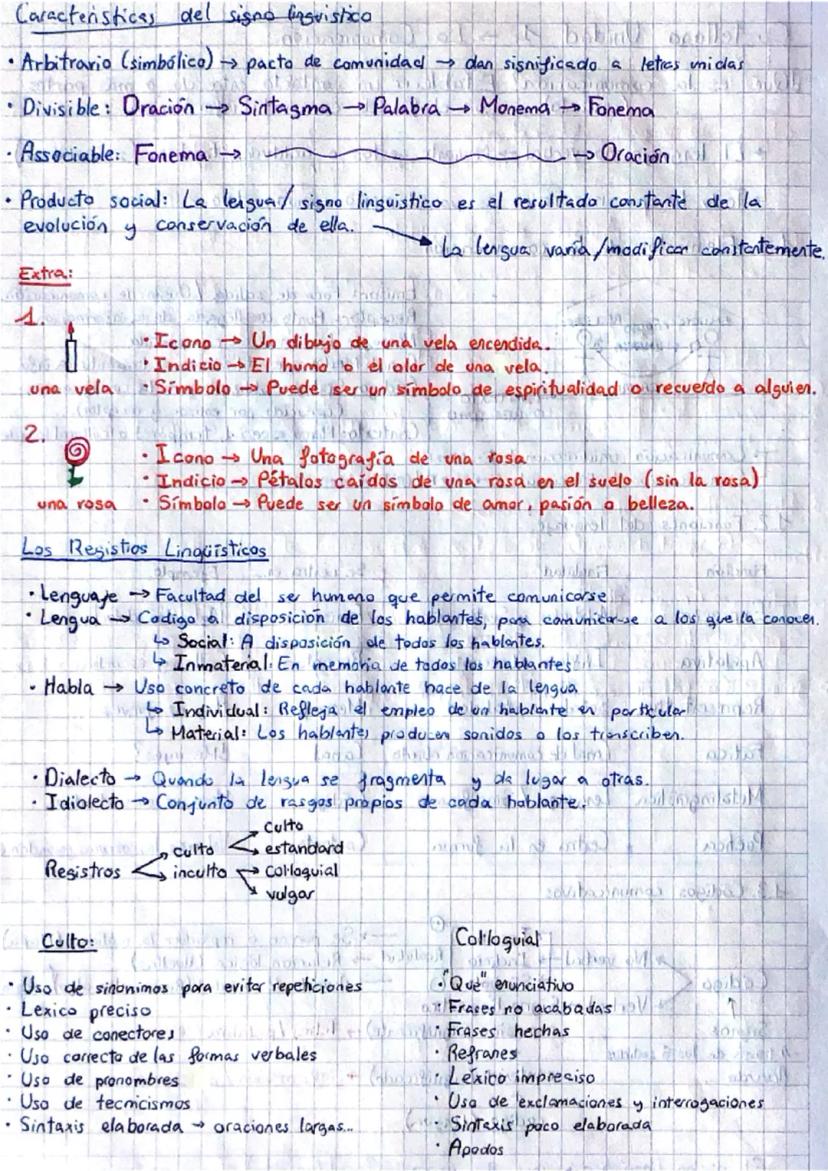 Características del signo lingüístico
• Arbitrario (simbólico) → pacto de comunidad → dan significado a letras unidas
• Divisible: Oración → Sintagma → Palabra → Monema → Fonema
• Associable: Fonema → → Oración
• Producto social: La lengua / signo linguistico es el resultado constante de la
evolución y conservación de ella.
La lengua varia/modificar constantemente.
Extra:
1.
• Icono → Un dibujo de una vela encendida.
• Indicio → El humo o el olor de una vela.
una vela • Símbolo → Puede ser un símbolo de espiritualidad o recuerdo a alguien.
2.
• Icono → Una fotografía de una rosa
• Indicio → Pétalos caídos de una rosa en el suelo (sin la rosa)
una rosa • Símbolo → Puede ser un símbolo de amor, pasión o belleza.
Los Registros Lingüísticos
• Lenguaje → Facultad del ser humano que permite comunicarse
• Lengua → Codigo a disposición de los hablantes, para comunicarse a los que la conocen.
↳ Social: A disposición de todos los hablantes.
↳ Inmaterial: En memoria de todos los hablantes
• Habla → Uso concreto de cada hablante hace de la lengua
↳ Individual: Refleja el empleo de un hablante en particular
↳ Material: Los hablantes producen sonidos o los transcriben.
• Dialecto → Quando la lengua se fragmenta y da lugar a otras.
• Idiolecto → Conjunto de rasgos propios de cada hablante.
Culto
culto estandard
Registros inculto col·loquial
vulgar
Culto:
• Uso de sinonimos para evitar repeticiones
• Lexico preciso
• Uso de conectores
• Uso correcto de las formas verbales
• Uso de pronombres
• Uso de tecnicismos
• Sintaxis elaborada → oraciones largas...
Col·loquial
• "Que" enunciativo
• Frases no acabadas
• Frases hechas
• Refranes
• Léxico impreciso
• Uso de exclamaciones y interrogaciones
• Sintaxis poco elaborada
• Apodos